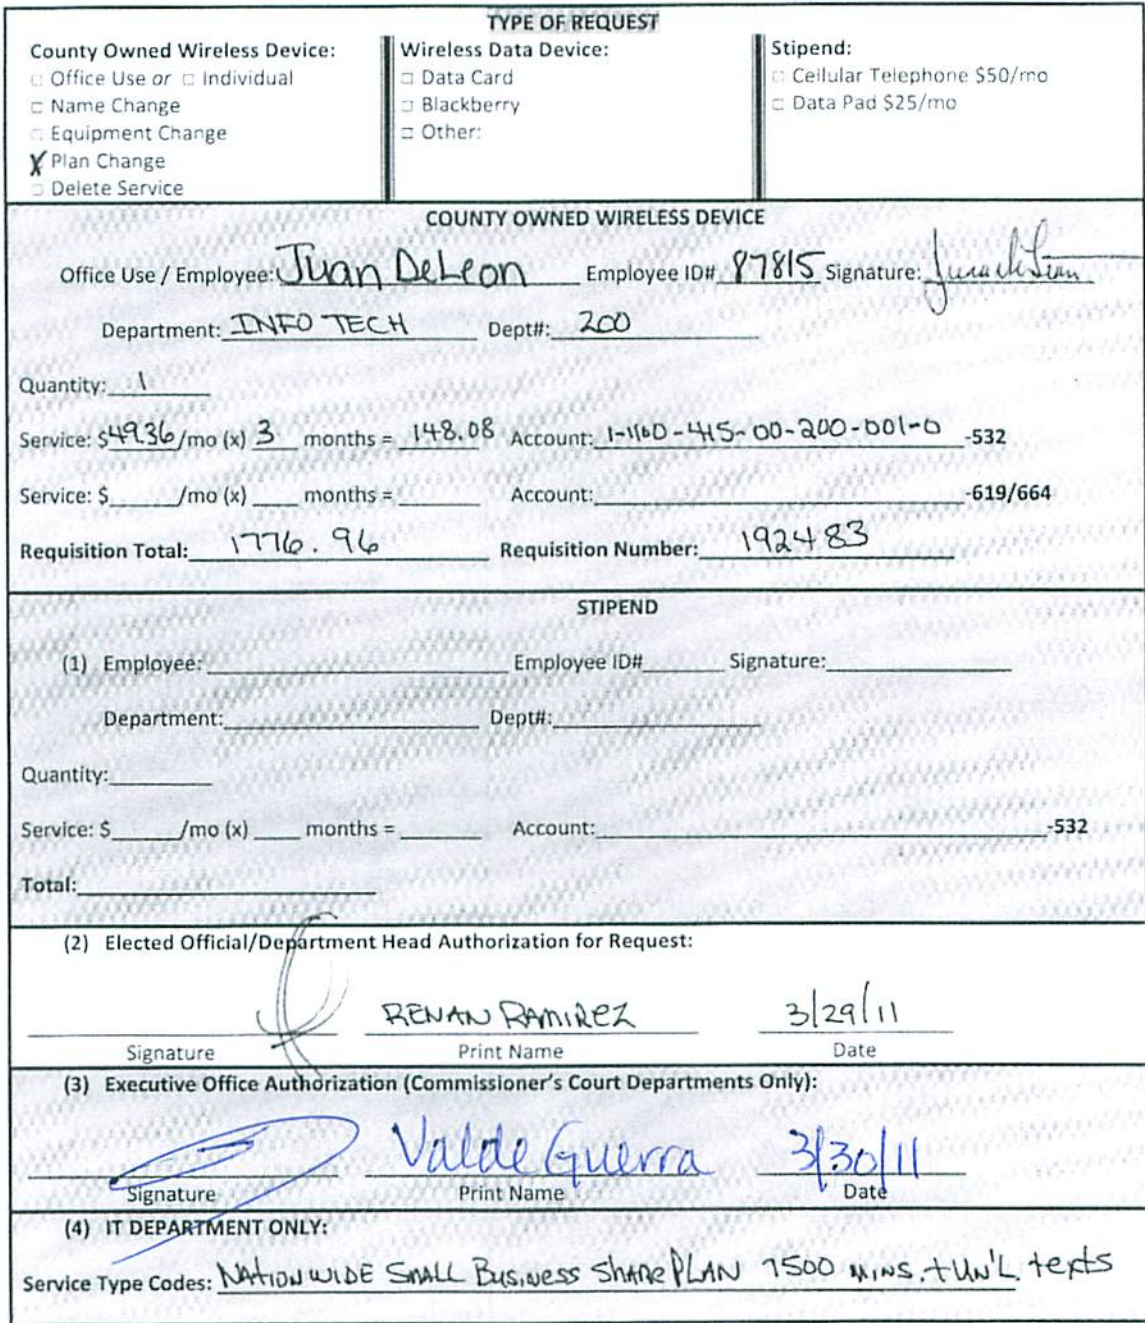 TYPE OF REQUEST
County Owned Wireless Device:
Office Use or Individual
Name Change
Equipment Change
X Plan Change
Delete Service
Wireless Data Device:
Data Card
Blackberry
Other:
Stipend:
Cellular Telephone $50/mo
Data Pad $25/mo
COUNTY OWNED WIRELESS DEVICE
Office Use / Employee: Juan DeLeon Employee ID# 87815 Signature:
Department: INFO TECH Dept#: 200
Quantity: 1
Service: $49.36/mo (x) 3 months = 148.08 Account: 1-1100-415-00-200-001-0 -532
Service: $ /mo (x) months = Account: -619/664
Requisition Total: 1776.96 Requisition Number: 192483
STIPEND
(1) Employee: Employee ID# Signature:
Department: Dept#:
Quantity:
Service: $ /mo (x) months = Account: -532
Total:
(2) Elected Official/Department Head Authorization for Request:
RENAN RAMIREZ 3/29/11
Signature Print Name Date
(3) Executive Office Authorization (Commissioner's Court Departments Only):
Valde Guerra 3/30/11
Signature Print Name Date
(4) IT DEPARTMENT ONLY:
Service Type Codes: NATIONWIDE SMALL BUSINESS SHARE PLAN 1500 MINS. + UN'L. texts